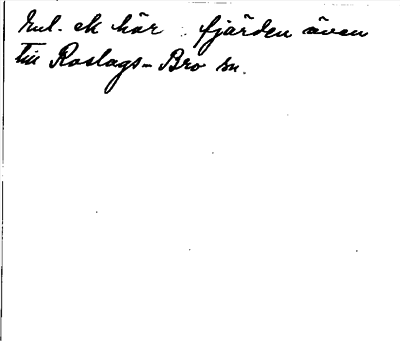 Enl. ek hör fjärden även
till Roslags-Bro sn.